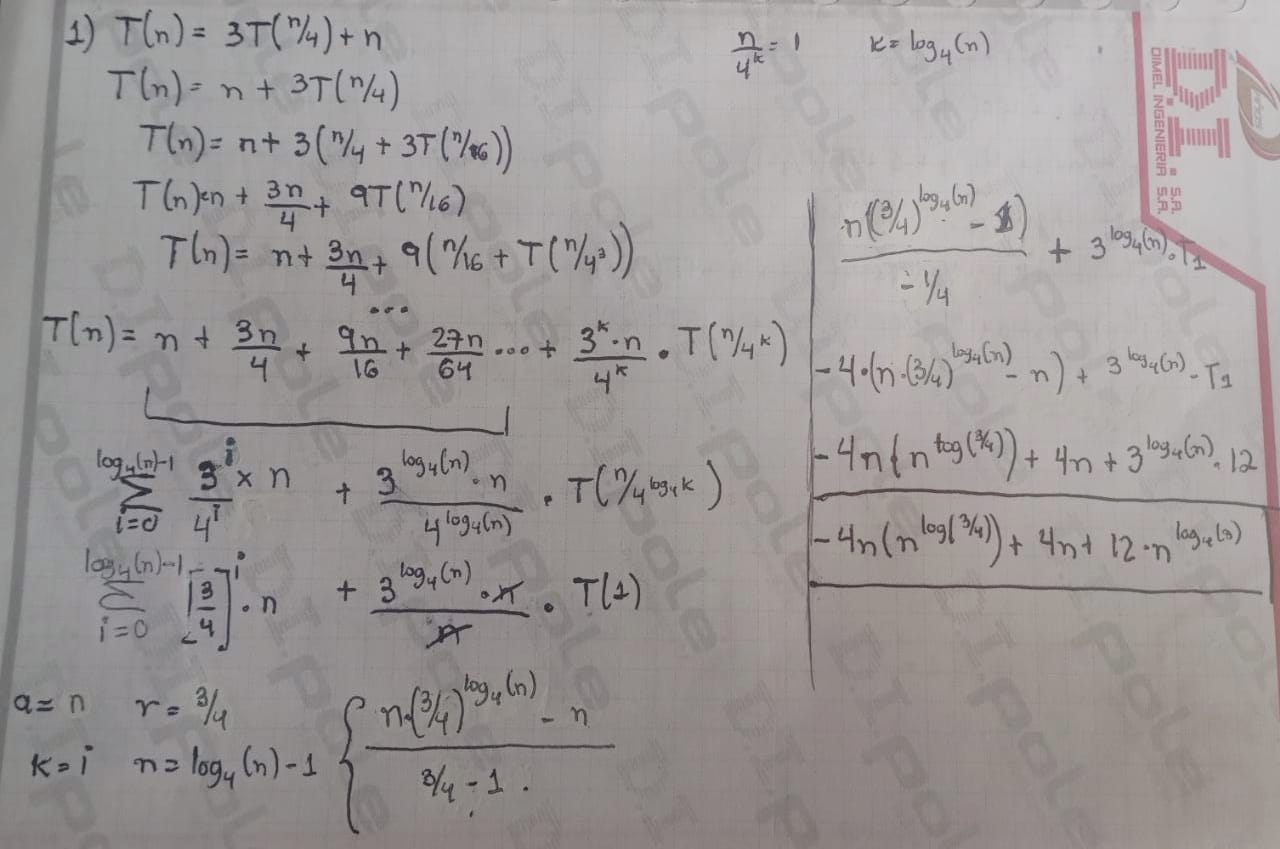 1) T(n) = 3T(n/4) + n
n/4^k = 1    k = log₄(n)
T(n) = n + 3T(n/4)
T(n) = n + 3(n/4 + 3T(n/16))
T(n) = n + 3n/4 + 9T(n/16)
T(n) = n + 3n/4 + 9(n/16 + T(n/4³))
...
T(n) = n + 3n/4 + 9n/16 + 27n/64 ... + 3^k · n/4^k · T(n/4^k)
log₄(n)-1 Σ i=0 3^i/4^i × n + 3^log₄(n) · n/4^log₄(n) · T(n/4^log₄k)
log₄(n)-1 Σ i=0 [3/4]^i · n + 3^log₄(n) · n/n · T(1)
a = n    r = 3/4
k = i    n = log₄(n) - 1
{ n·(3/4)^log₄(n) - n / 3/4 - 1 .
n((3/4)^log₄(n) - 1) / - 1/4 + 3^log₄(n) · T1
- 4 · (n · (3/4)^log₄(n) - n) + 3^log₄(n) · T1
- 4n(n^log(3/4)) + 4n + 3^log₄(n) · 12
- 4n(n^log(3/4)) + 4n + 12 · n^log₄(3)
D.I.
DIMEL INGENIERIA S.A.
S.A.
D.I.pole